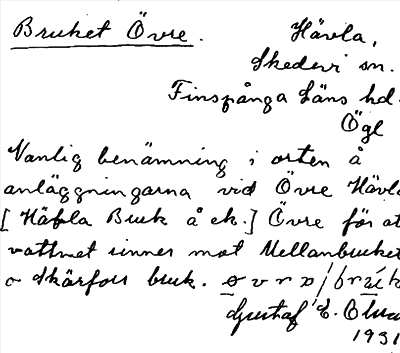 Bruket Övre. Hävla,
Skedevi sn.
Finspånga Läns hd.
Ögl
Vanlig benämning i orten å
anläggningarna vid Övre Hävla
[Häfla Bruk å ek.] Övre för at
vattnet rinner mot Mellanbruket
o Skärfors bruk.
Gustaf E. Olsson
1931